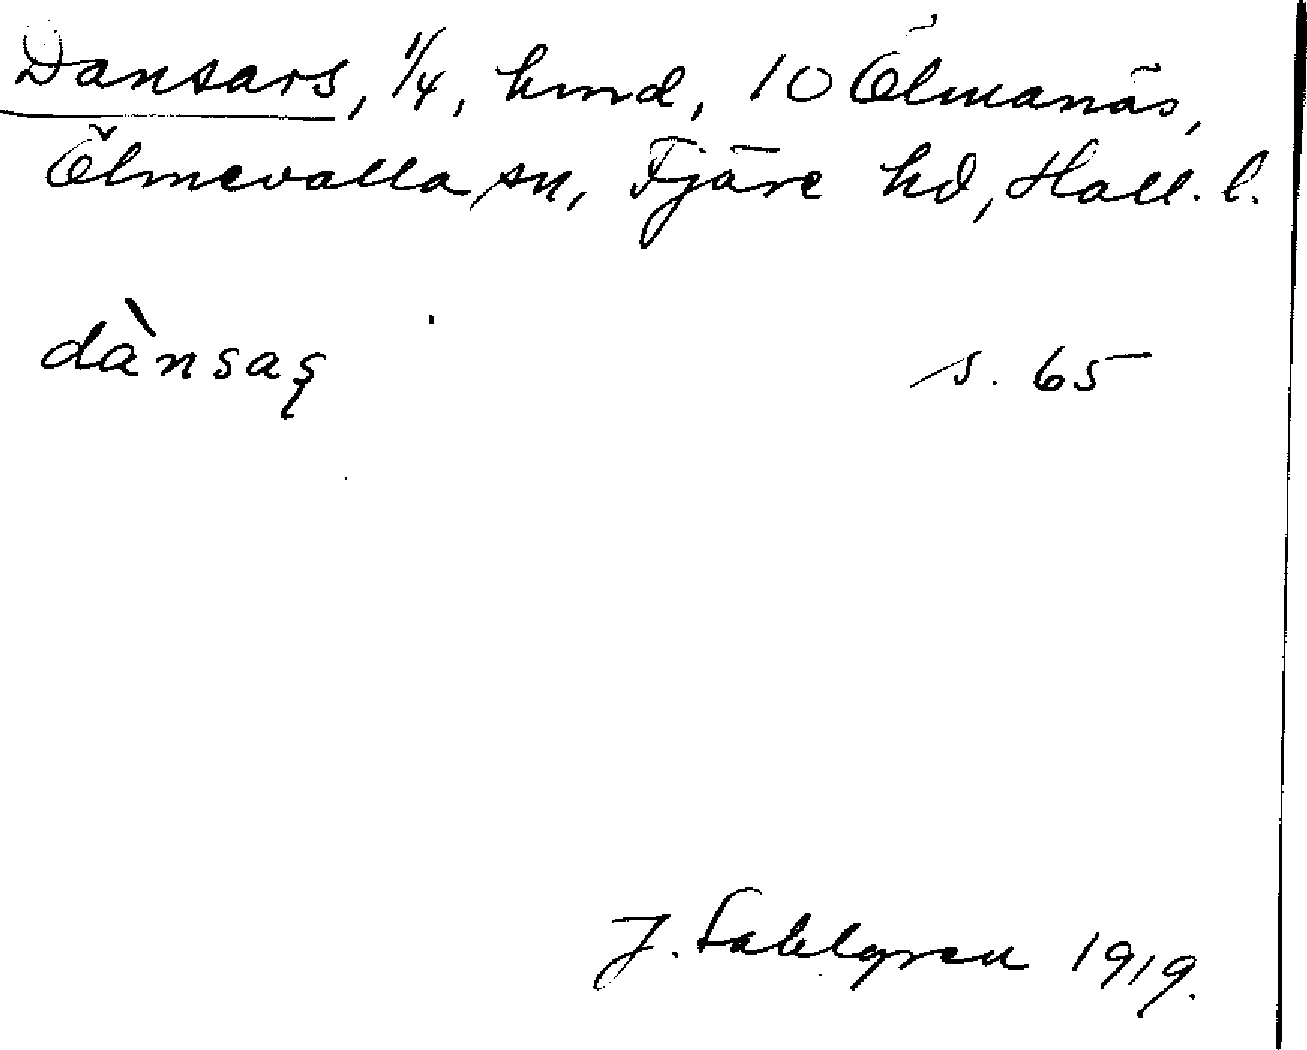 Dansars, 1/4, hmd, 10 Ölmanäs,
Ölmevalla sn, Fjäre hd, Hall. l.
dànsaş s. 65
J. Sahlgren 1919.